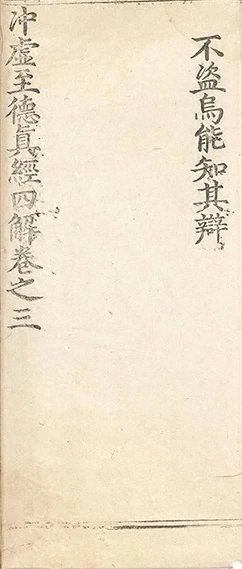 不盜烏能知其辯
冲虛至德眞經四解卷之三